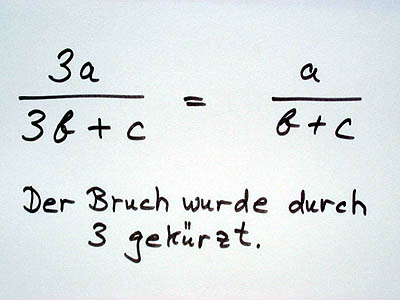 3a / 3b + c = a / b + c
Der Bruch wurde durch
3 gekürzt.